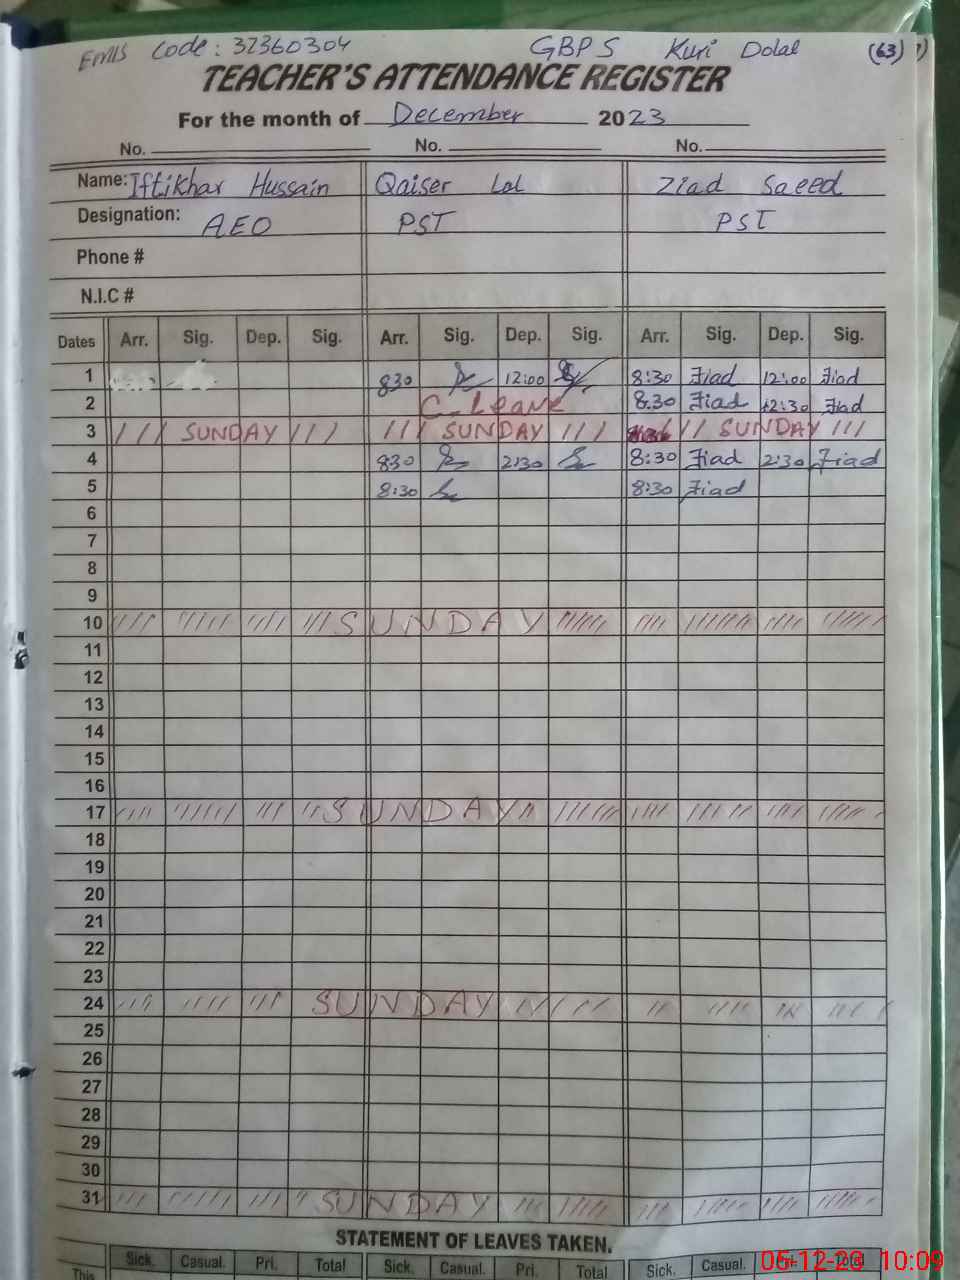 EMIS Code: 32360304 GBPS Kuri Dolal (63)
TEACHER'S ATTENDANCE REGISTER
For the month of December 2023
No. No. No.
Name: Iftikhar Hussain Qaiser Lal Ziad Saeed
Designation: AEO PST PST
Phone #
N.I.C #
Dates Arr. Sig. Dep. Sig. Arr. Sig. Dep. Sig. Arr. Sig. Dep. Sig.
1 830 12:00 8:30 Ziad 12:00 Ziad
2 C-Leave 8:30 Ziad 12:30 Ziad
3 /// SUNDAY /// /// SUNDAY /// // SUNDAY ///
4 830 2:30 8:30 Ziad 2:30 Ziad
5 8:30 8:30 Ziad
6
7
8
9
10 SUNDAY
11
12
13
14
15
16
17 SUNDAY
18
19
20
21
22
23
24 SUNDAY
25
26
27
28
29
30
31 SUNDAY
STATEMENT OF LEAVES TAKEN.
Sick. Casual. Pri. Total Sick. Casual. Pri. Total Sick. Casual. Pri. Total
This
05-12-23 10:09